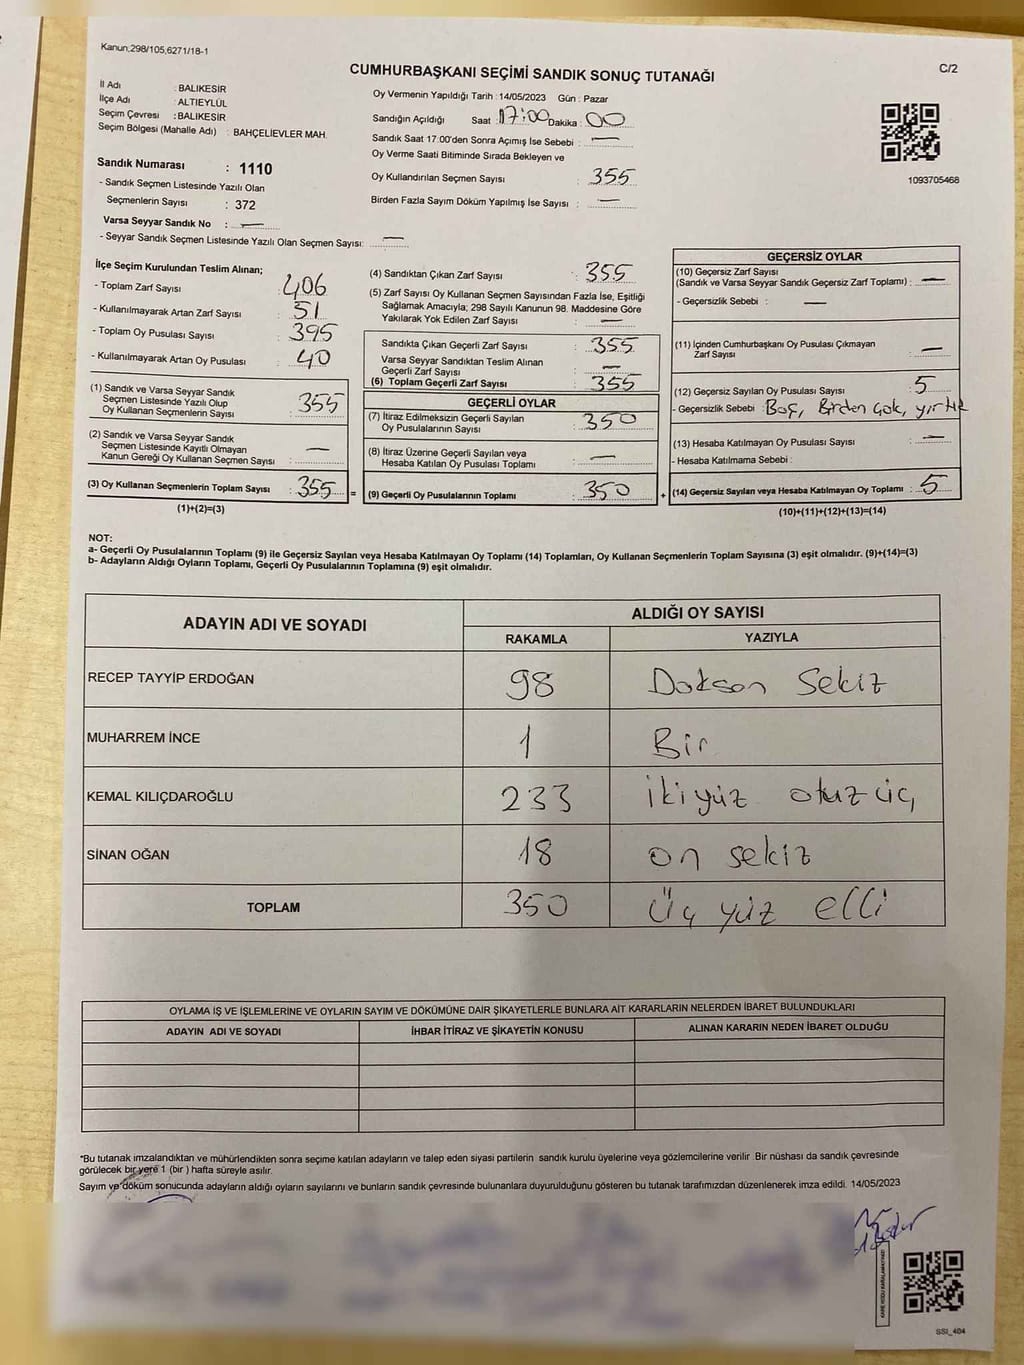 Kanun;298/105,6271/18-1
C/2
CUMHURBAŞKANI SEÇİMİ SANDIK SONUÇ TUTANAĞI
İl Adı : BALIKESİR
İlçe Adı : ALTIEYLÜL
Seçim Çevresi : BALIKESİR
Seçim Bölgesi (Mahalle Adı) : BAHÇELİEVLER MAH.
Oy Vermenin Yapıldığı Tarih : 14/05/2023 Gün : Pazar
Sandığın Açıldığı Saat : 17:00 Dakika : 00
Sandık Saat 17:00'den Sonra Açımış İse Sebebi : —
Oy Verme Saati Bitiminde Sırada Bekleyen ve
Oy Kullandırılan Seçmen Sayısı : 355
Birden Fazla Sayım Döküm Yapılmış İse Sayısı : —
1093705468
Sandık Numarası : 1110
- Sandık Seçmen Listesinde Yazılı Olan
Seçmenlerin Sayısı : 372
Varsa Seyyar Sandık No : —
- Seyyar Sandık Seçmen Listesinde Yazılı Olan Seçmen Sayısı: —
İlçe Seçim Kurulundan Teslim Alınan;
- Toplam Zarf Sayısı : 406
- Kullanılmayarak Artan Zarf Sayısı : 51
- Toplam Oy Pusulası Sayısı : 395
- Kullanılmayarak Artan Oy Pusulası : 40
(1) Sandık ve Varsa Seyyar Sandık
Seçmen Listesinde Yazılı Olup
Oy Kullanan Seçmenlerin Sayısı : 355
(2) Sandık ve Varsa Seyyar Sandık
Seçmen Listesinde Kayıtlı Olmayan
Kanun Gereği Oy Kullanan Seçmen Sayısı : —
(3) Oy Kullanan Seçmenlerin Toplam Sayısı : 355
(1)+(2)=(3)
=
(4) Sandıktan Çıkan Zarf Sayısı : 355
(5) Zarf Sayısı Oy Kullanan Seçmen Sayısından Fazla İse, Eşitliği
Sağlamak Amacıyla; 298 Sayılı Kanunun 98. Maddesine Göre
Yakılarak Yok Edilen Zarf Sayısı : —
Sandıkta Çıkan Geçerli Zarf Sayısı : 355
Varsa Seyyar Sandıktan Teslim Alınan
Geçerli Zarf Sayısı : —
(6) Toplam Geçerli Zarf Sayısı : 355
GEÇERLİ OYLAR
(7) İtiraz Edilmeksizin Geçerli Sayılan
Oy Pusulalarının Sayısı : 350
(8) İtiraz Üzerine Geçerli Sayılan veya
Hesaba Katılan Oy Pusulası Toplamı : —
(9) Geçerli Oy Pusulalarının Toplamı : 350
+
GEÇERSİZ OYLAR
(10) Geçersiz Zarf Sayısı
(Sandık ve Varsa Seyyar Sandık Geçersiz Zarf Toplamı) : —
- Geçersizlik Sebebi : —
(11) İçinden Cumhurbaşkanı Oy Pusulası Çıkmayan
Zarf Sayısı : —
(12) Geçersiz Sayılan Oy Pusulası Sayısı : 5
- Geçersizlik Sebebi : Boş, Birden Çok, yırtık
(13) Hesaba Katılmayan Oy Pusulası Sayısı : —
- Hesaba Katılmama Sebebi :
(14) Geçersiz Sayılan veya Hesaba Katılmayan Oy Toplamı : 5
(10)+(11)+(12)+(13)=(14)
NOT:
a- Geçerli Oy Pusulalarının Toplamı (9) ile Geçersiz Sayılan veya Hesaba Katılmayan Oy Toplamı (14) Toplamları, Oy Kullanan Seçmenlerin Toplam Sayısına (3) eşit olmalıdır. (9)+(14)=(3)
b- Adayların Aldığı Oyların Toplamı, Geçerli Oy Pusulalarının Toplamına (9) eşit olmalıdır.
ADAYIN ADI VE SOYADI
ALDIĞI OY SAYISI
RAKAMLA YAZIYLA
RECEP TAYYİP ERDOĞAN 98 Doksan Sekiz
MUHARREM İNCE 1 Bir
KEMAL KILIÇDAROĞLU 233 ikiyüz otuz üç
SİNAN OĞAN 18 on sekiz
TOPLAM 350 Üç yüz elli
OYLAMA İŞ VE İŞLEMLERİNE VE OYLARIN SAYIM VE DÖKÜMÜNE DAİR ŞİKAYETLERLE BUNLARA AİT KARARLARIN NELERDEN İBARET BULUNDUKLARI
ADAYIN ADI VE SOYADI İHBAR İTİRAZ VE ŞİKAYETİN KONUSU ALINAN KARARIN NEDEN İBARET OLDUĞU
*Bu tutanak imzalandıktan ve mühürlendikten sonra seçime katılan adayların ve talep eden siyasi partilerin sandık kurulu üyelerine veya gözlemcilerine verilir. Bir nüshası da sandık çevresinde
görülecek bir yere 1 (bir) hafta süreyle asılır.
Sayım ve döküm sonucunda adayların aldığı oyların sayılarını ve bunların sandık çevresinde bulunanlara duyurulduğunu gösteren bu tutanak tarafımızdan düzenlenerek imza edildi. 14/05/2023
SSI_404